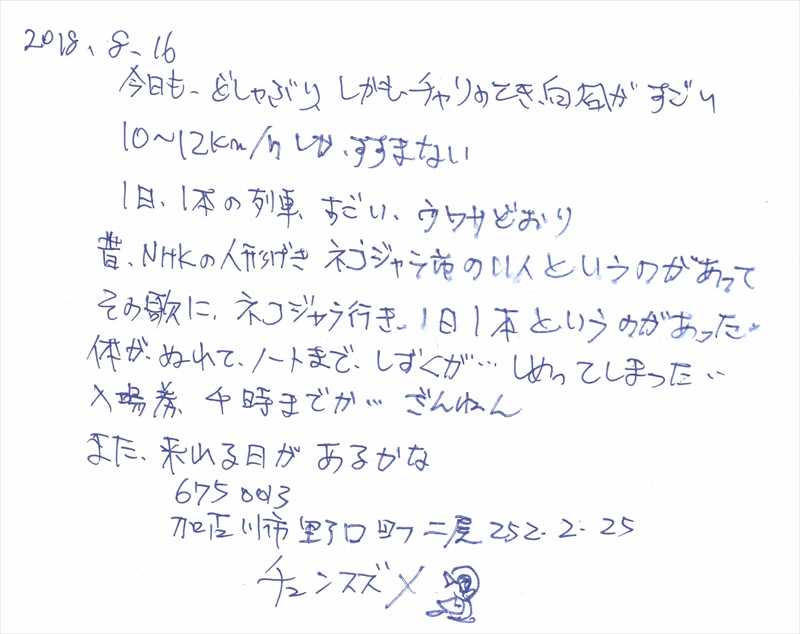 2018、8、16
今日も、どしゃぶり、しかも、チャリのてき、向風がすごい
10～12Km/hしか、すすまない
1日、1本の列車、すごい、ウワサどおり
昔、NHKの人形げき ネコジャラ市の11人というのがあって
その歌に、ネコジャラ行き、1日1本というのがあった。
体が、ぬれて、ノートまで、しずくが… しめってしまった‥
入場券、4時までか… ざんねん
また、来れる日が あるかな
675 0013
加古川市野口町二屋252.2.25
チュンスズメ